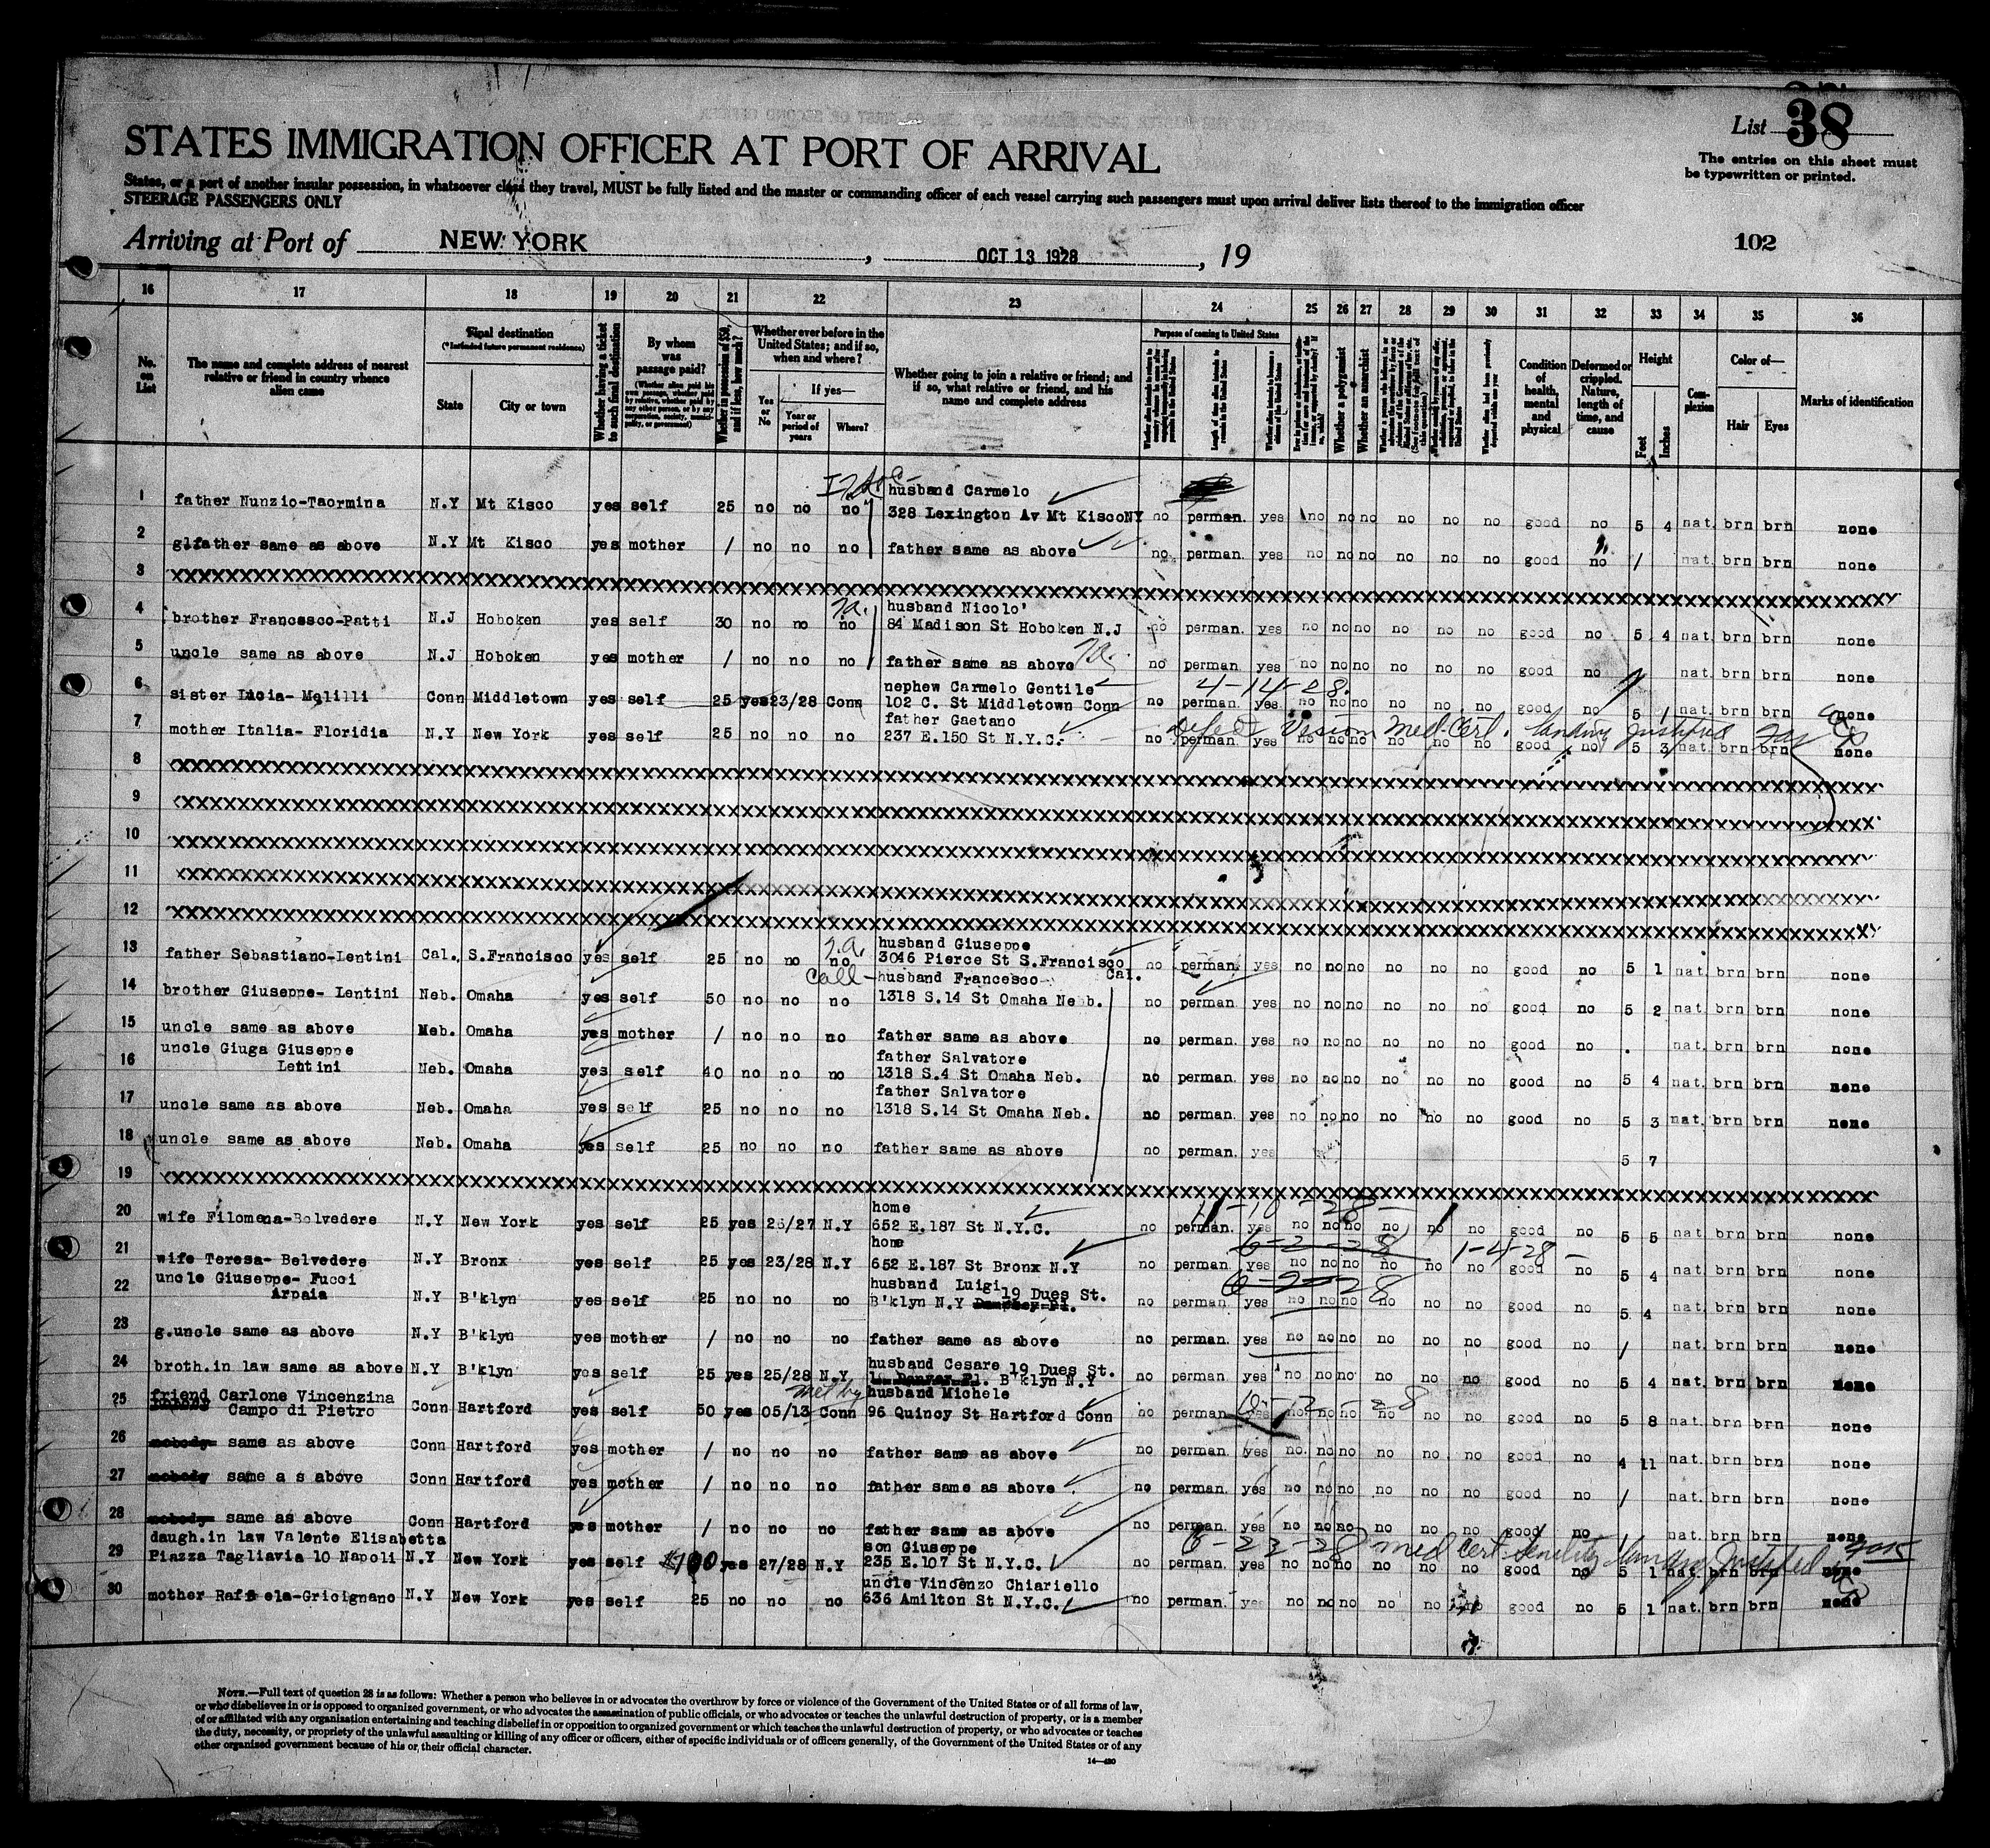 List 38
The entries on this sheet must
be typewritten or printed.
STATES IMMIGRATION OFFICER AT PORT OF ARRIVAL
States, or a port of another insular possession, in whatsoever class they travel, MUST be fully listed and the master or commanding officer of each vessel carrying such passengers must upon arrival deliver lists thereof to the immigration officer
STEERAGE PASSENGERS ONLY
Arriving at Port of NEW YORK, OCT 13 1928, 19
102
16 17 18 19 20 21 22 23 24 25 26 27 28 29 30 31 32 33 34 35 36
No. on List
The name and complete address of nearest relative or friend in country whence alien came
Final destination
(*Intended future permanent residence)
State
City or town
Whether having a ticket to such final destination
By whom was passage paid?
Whether in possession of $50, and if less, how much?
Whether ever before in the United States; and if so, when and where?
Yes or No
If yes—
Year or period of years
Where?
Whether going to join a relative or friend; and if so, what relative or friend, and his name and complete address
Purpose of coming to United States
Length of time alien intends to remain in the United States
Whether a polygamist
Whether an anarchist
Condition of health, mental and physical
Deformed or crippled. Nature, length of time, and cause
Height
Feet
Inches
Complexion
Color of—
Hair
Eyes
Marks of identification
1 father Nunzio-Taormina N.Y Mt Kisco yes self 25 no no no husband Carmelo 328 Lexington Av Mt Kisco NY no perman. yes no no no no no no good no 5 4 nat. brn brn none
2 glfather same as above N.Y Mt Kisco yes mother / no no no father same as above no perman. yes no no no no no no good no / nat. brn brn none
3
4 brother Francesco-Patti N.J Hoboken yes self 30 no no no husband Nicolo' 84 Madison St Hoboken N.J no perman. yes no no no no no no good no 5 4 nat. brn brn none
5 uncle same as above N.J Hoboken yes mother / no no no father same as above no perman yes no no no no no no good no nat. brn brn none
6 sister Lucia- Melilli Conn Middletown yes self 25 yes 23/28 Conn nephew Carmelo Gentile 102 C. St Middletown Conn 4-14-28. no perman. yes no no no no no no good no 5 1 nat. brn brn none
7 mother Italia- Floridia N.Y New York yes self 25 no no no father Gaetano 237 E.150 St N.Y.C. Vision Med. Cert. no perman yes no no no no no no good no 5 3 nat. brn brn none
8
9
10
11
12
13 father Sebastiano-Lentini Cal. S.Francisco yes self 25 no no no husband Giuseppe 3046 Pierce St S.Francisco Cal. no perman. yes no no no no no no good no 5 1 nat. brn brn none
14 brother Giuseppe- Lentini Neb. Omaha yes self 50 no no no Call husband Francesco 1318 S.14 St Omaha Neb. no perman. yes no no no no no no good no 5 2 nat. brn brn none
15 uncle same as above Neb. Omaha yes mother / no no no father same as above no perman. yes no no no no no no good no nat. brn brn none
16 uncle Giuga Giuseppe Lentini Neb. Omaha yes self 40 no no no father Salvatore 1318 S.4 St Omaha Neb. no perman. yes no no no no no no good no 5 4 nat. brn brn none
17 uncle same as above Neb. Omaha yes self 25 no no no father Salvatore 1318 S.14 St Omaha Neb. no perman. yes no no no no no no good no 5 3 nat. brn brn none
18 uncle same as above Neb. Omaha yes self 25 no no no father same as above no perman. yes 5 7
19
20 wife Filomena-Belvedere N.Y New York yes self 25 yes 26/27 N.Y home 652 E.187 St N.Y.C. 11-10-28- no perman. yes no no no no no no good no 5 5 nat. brn brn none
21 wife Teresa- Belvedere N.Y Bronx yes self 25 yes 23/28 N.Y home 652 E.187 St Bronx N.Y 6-2-28 1-4-28- no perman. yes no no no no no no good no 5 4 nat. brn brn none
22 uncle Giuseppe- Fucci Arpaia N.Y B'klyn yes self 25 no no no husband Luigi 19 Dues St. B'klyn N.Y 6-2-28 no perman. yes no no no no no no good no 5 4 nat. brn brn none
23 g.uncle same as above N.Y B'klyn yes mother / no no no father same as above no perman. yes no no no no no no good no / nat. brn brn none
24 broth.in law same as above N.Y B'klyn yes self 25 yes 25/28 N.Y husband Cesare 19 Dues St. B klyn N.Y no perman. yes no no no no no no good no 5 4 nat. brn brn none
25 friend Carlone Vincenzina Campo di Pietro Conn Hartford yes self 50 yes 05/13 Conn met by husband Michele 96 Quincy St Hartford Conn no perman yes no no no no no no good no 5 8 nat. brn brn none
26 nobody same as above Conn Hartford yes mother / no no no father same as above no perman. yes no. no no no no no good no 4 11 nat. brn brn none
27 nobody same a s above Conn Hartford yes mother / no no no father same as above no perman. yes no no no no no no good no / nat. brn brn none
28 nobody same as above Conn Hartford yes mother / no no no father same as above no perman. yes no no no no no no good no nat. brn brn none
29 daugh.in law Valente Elisabetta Piazza Tagliavia 10 Napoli N.Y New York yes self $100 yes 27/28 N.Y son Giuseppe 235 E.107 St N.Y.C. 6-23-28 med cert. Senility landing Justified no perman. yes no no no no no no good no 5 1 nat. brn brn none
30 mother Raffaela-Gricignano N.Y New York yes self 25 no no no uncle Vincenzo Chiariello 636 Amilton St N.Y.C. no perman. yes no no no no no no good no 5 1 nat. brn brn none
NOTE.—Full text of question 28 is as follows: Whether a person who believes in or advocates the overthrow by force or violence of the Government of the United States or of all forms of law,
or who disbelieves in or is opposed to organized government, or who advocates the assassination of public officials, or who advocates or teaches the unlawful destruction of property, or is a member
of or affiliated with any organization entertaining and teaching disbelief in or opposition to organized government or which teaches the unlawful destruction of property, or who advocates or teaches
the duty, necessity, or propriety of the unlawful assaulting or killing of any officer or officers, either of specific individuals or of officers generally, of the Government of the United States or of any
other organized government because of his or their official character.
14—420